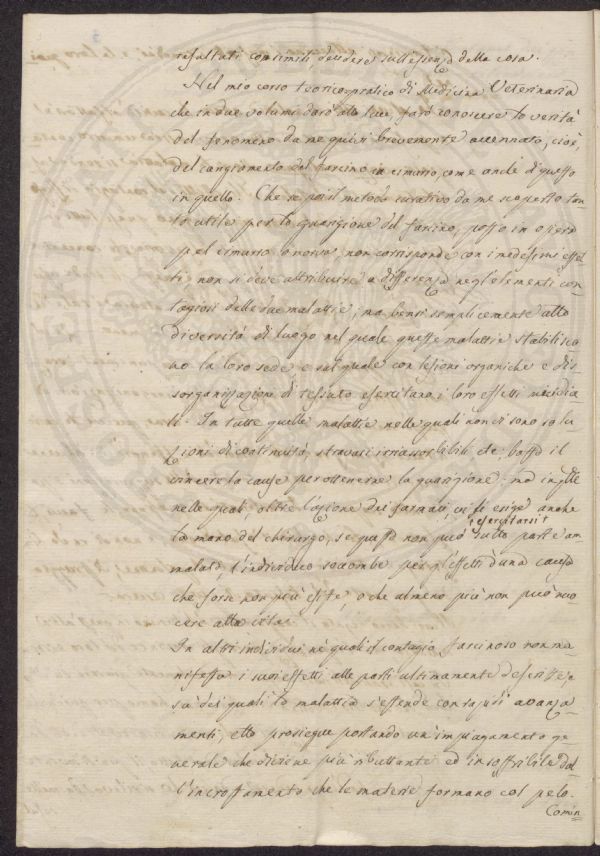 resultati consimili, decidere sull'essenza della cosa.
Nel mio corso teorico-pratico di Medicina Veterinaria
che in due volumi darò alla luce, farò conoscere la verità
del fenomeno da me quivi brevemente accennato, cioè,
del cangiamento del farcino in cimurro, come anche di questo
in quello. Che se poi il metodo curativo da me scoperto tan
to utile per la guarigione del farcino, posto in opera
pel cimurro o morva, non corrisponde con i medesimi effet
ti, non si deve attribuire a differenza negl'elementi con
tagiosi delle due malattie; ma bensì semplicemente alla
diversità di luogo nel quale queste malattie stabilisco
no la loro sede e sul quale con lesioni organiche e dis-
sorganizzazioni di tessuto esercitano i loro effetti micidia
li. In tutte quelle malattie nelle quali non vi sono solu
zioni di continuità, stravasi irriassorbibili etc: basta il
vincere la causa per ottenerne la guarigione; ma in quelle
nelle quali, oltre l'azione dei farmaci, vi si esige anche
la mano del chirurgo, se questa non può esercitarsi sulla parte am-
malata, l'individuo socombe per gl'effetti d'una causa
che forse non più esiste, o che almeno più non può nuo
cere alla vita.
In altri individui nè quali il contagio farcinoso non ma-
nifesta i suoi effetti alle parti ultimamente descritte, e
sù dei quali la malattia s'estende con rapidi avanza-
menti, ella prosiegue portando un'impiagamento ge-
nerale che diviene più ributtante ed insoffribile dal-
l'incrostamento che le materie formano col pelo.
Comin